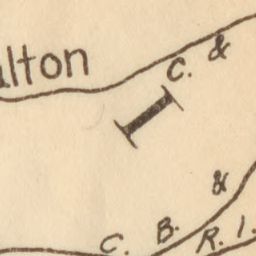 alton
C. &
C. B. &
R. I.